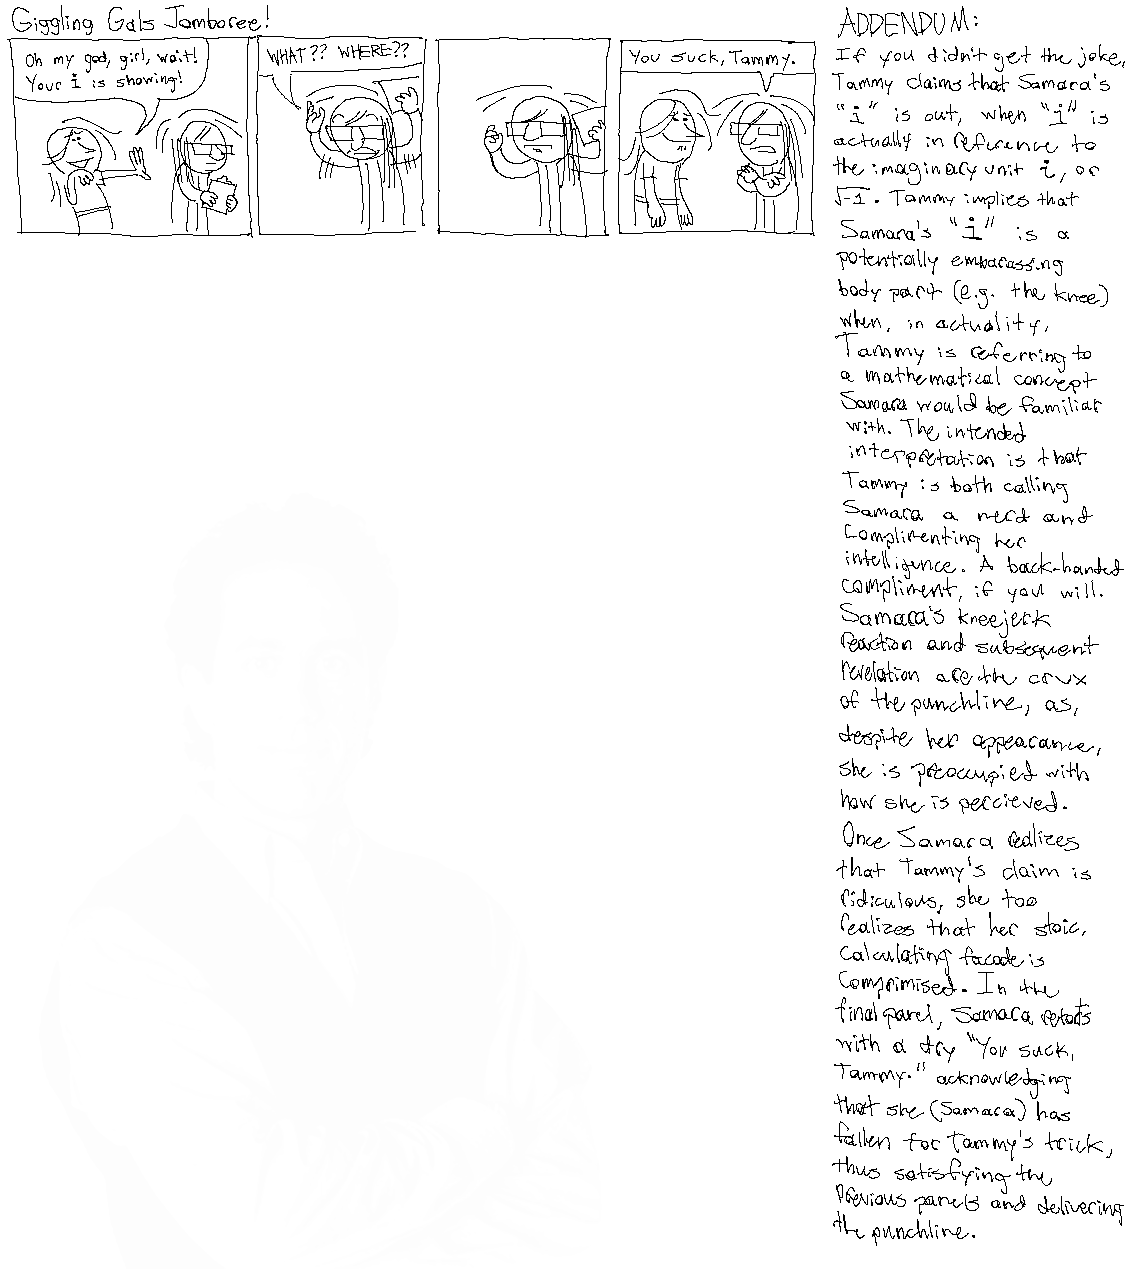 Giggling Gals Jamboree!
Oh my god, girl, wait!
Your i is showing!
WHAT?? WHERE??
You suck, Tammy.
ADDENDUM:
If you didn't get the joke,
Tammy claims that Samara's
"i" is out, when "i" is
actually in reference to
the imaginary unit i, or
√-1. Tammy implies that
Samara's "i" is a
potentially embarassing
body part (e.g. the knee)
when, in actuality,
Tammy is referring to
a mathematical concept
Samara would be familiar
with. The intended
interpretation is that
Tammy is both calling
Samara a nerd and
complimenting her
intelligence. A back-handed
compliment, if you will.
Samara's kneejerk
reaction and subsequent
revelation are the crux
of the punchline, as,
despite her appearance,
she is preoccupied with
how she is percieved.
Once Samara realizes
that Tammy's claim is
ridiculous, she too
realizes that her stoic,
calculating facade is
comprimised. In the
final panel, Samara retorts
with a dry "You suck,
Tammy." acknowledging
that she (Samara) has
fallen for Tammy's trick,
thus satisfying the
previous panels and delivering
the punchline.